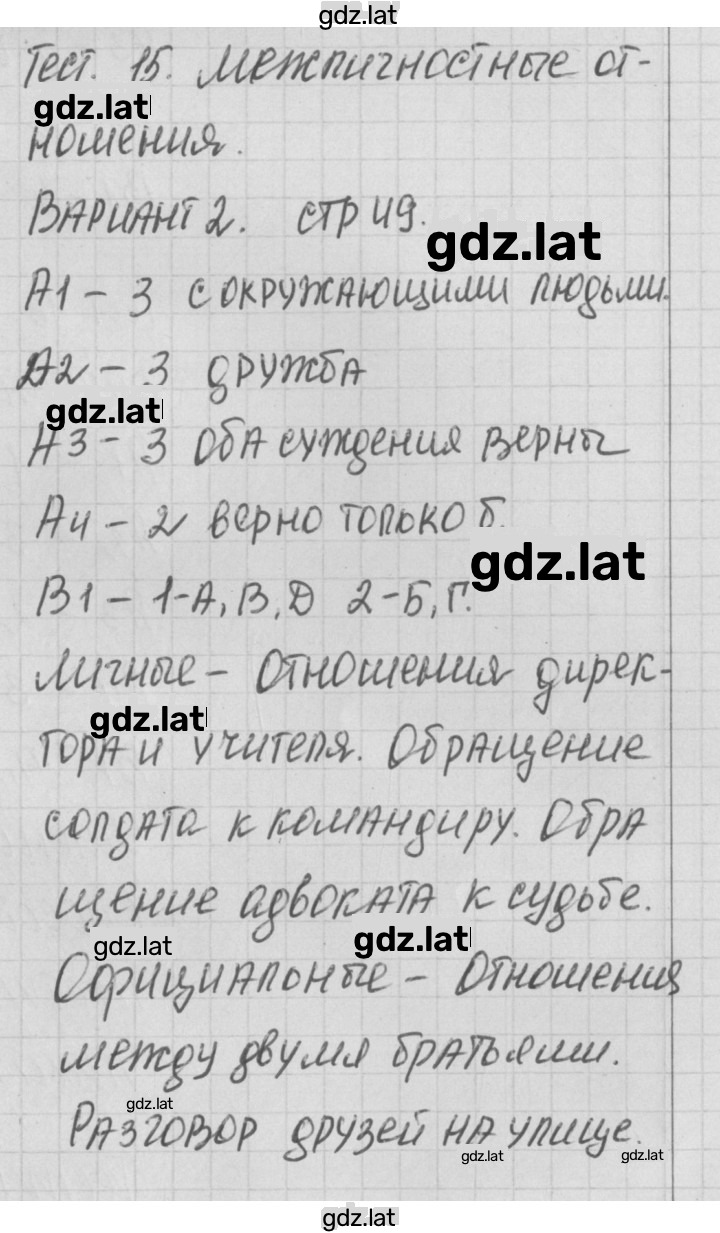 gdz.lat
Тест. 15. Межличностные от-
gdz.lat
ношения.
Вариант 2. стр 49.
gdz.lat
А1 - 3 с окружающими людьми.
А2 - 3 дружба
gdz.lat
А3 - 3 Оба суждения верны
А4 - 2 верно только б.
gdz.lat
В1 - 1-А, В, Д 2-Б, Г.
Личные - Отношения дирек-
gdz.lat
тора и учителя. Обращение
солдата к командиру. Обра
щение адвоката к судьбе.
gdz.lat gdz.lat
Официальные - Отношения
между двумя братьями.
gdz.lat
Разговор друзей на улице.
gdz.lat gdz.lat
gdz.lat